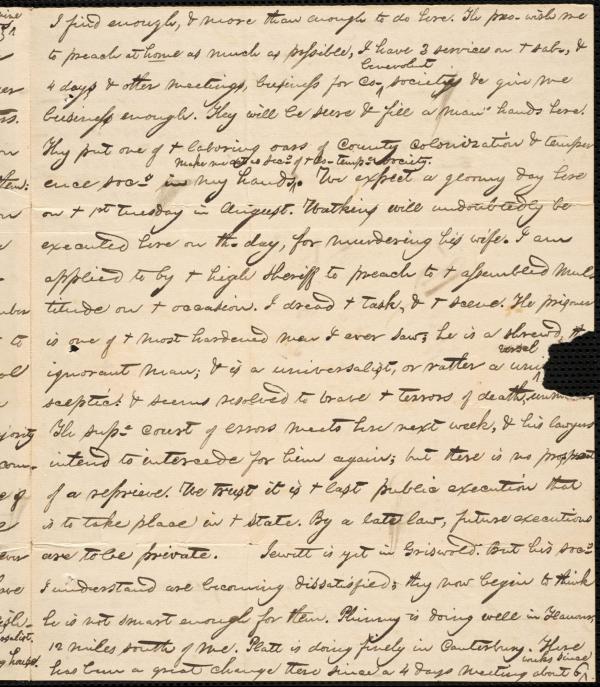 I find enough, & more than enough to do here. The pres. wish me
to preach at home as much as possible, I have 3 services on + sab., &
benevolent
4 days & other meetings, business for Co. society &c give me
business enough. They will be sure & fill a man's hands here.
They put one of + laboring oars of County Colonization & temper
make me act as sec. of + Co. temp. society.
ence soc. in my hands. We expect a gloomy day here
on + 1st tuesday in August. Watkins will undoubtedly be
executed here on th. day, for murdering his wife. I am
applied to by + high sheriff to preach to + assembled mul
titude on + occasion. I dread + task, & + scene. The prisoner
is one of + most hardened men I ever saw; he is a shrewd, th
ignorant man; & is a universalist, or rather a uni
versal
sceptic. & seems resolved to brave + terrors of death,
The sup. court of errors meets here next week, & his lawyers
intend to intercede for him again; but there is no prospect
of a reprieve. We trust it is + last public execution that
is to take place in + state. By a late law, future executions
are to be private. Jewitt is yet in Griswold. But his soc.
I understand are becoming dissatisfied; they now begin to think
he is not smart enough for them. Phinny is doing well in
12 miles south of me. Platt is doing finely in Canterbury. There
works since
has been a great change there since a 4 days meeting about 6